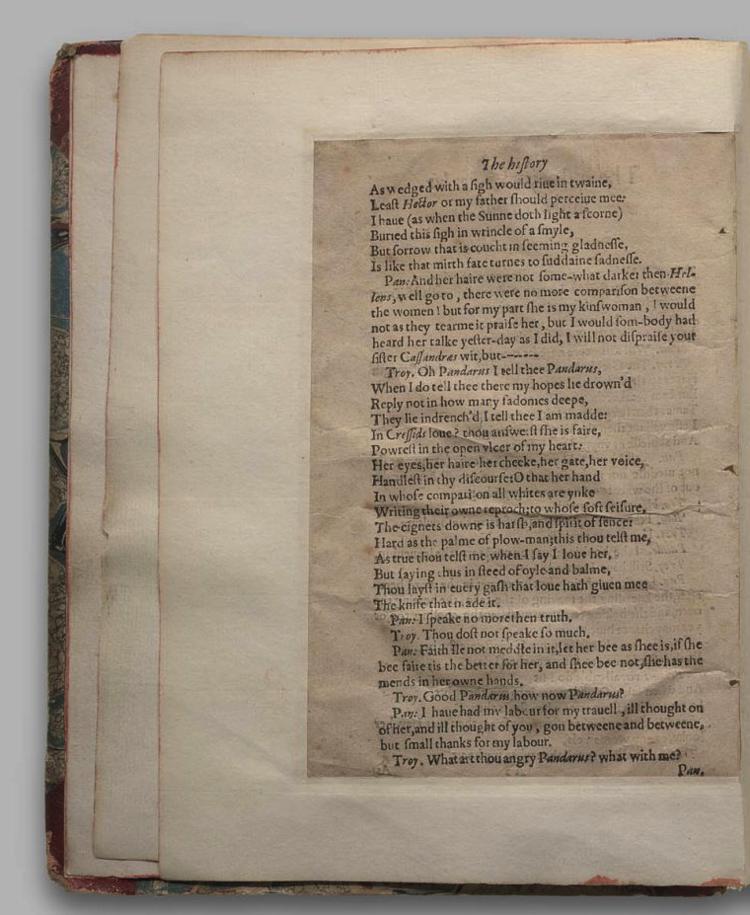 The hiſtory
As wedged with a ſigh would riue in twaine,
Leaſt Hector or my father ſhould perceiue mee:
I haue (as when the Sunne doth light a ſcorne)
Buried this ſigh in wrincle of a ſmyle,
But ſorrow that is coucht in ſeeming gladneſſe,
Is like that mirth fate turnes to ſuddaine ſadneſſe.
Pan: And her haire were not ſome-what darker then Hel-
lens, well go to, there were no more compariſon betweene
the women! but for my part ſhe is my kinſwoman, I would
not as they tearme it praiſe her, but I would ſom-body had
heard her talke yeſter-day as I did, I will not diſpraiſe your
ſiſter Caſſandras wit, but------
Troy. Oh Pandarus I tell thee Pandarus,
When I do tell thee there my hopes lie drown'd
Reply not in how many fadomes deepe,
They lie indrench'd, I tell thee I am madde:
In Creſſids loue? thou anſwerſt ſhe is faire,
Powreſt in the open vlcer of my heart:
Her eyes, her haire her cheeke, her gate, her voice,
Handleſt in thy diſcourſe: O that her hand
In whoſe compariſon all whites are ynke
Writing their owne reproch; to whoſe ſoft ſeiſure,
The cignets downe is harſh, and ſpirit of ſence:
Hard as the palme of plow-man; this thou telſt me,
As true thou telſt me, when I ſay I loue her,
But ſaying thus in ſteed of oyle and balme,
Thou layſt in euery gaſh that loue hath giuen mee
The knife that made it.
Pan: I ſpeake no more then truth.
Troy. Thou doſt not ſpeake ſo much.
Pan: Faith Ile not meddle in it, let her bee as ſhee is, if ſhe
bee faire tis the better for her, and ſhee bee not, ſhe has the
mends in her owne hands.
Troy. Good Pandarus how now Pandarus?
Pan: I haue had my labour for my trauell, ill thought on
of her, and ill thought of you, gon betweene and betweene,
but ſmall thanks for my labour.
Troy. What art thou angry Pandarus? what with me?
Pan.